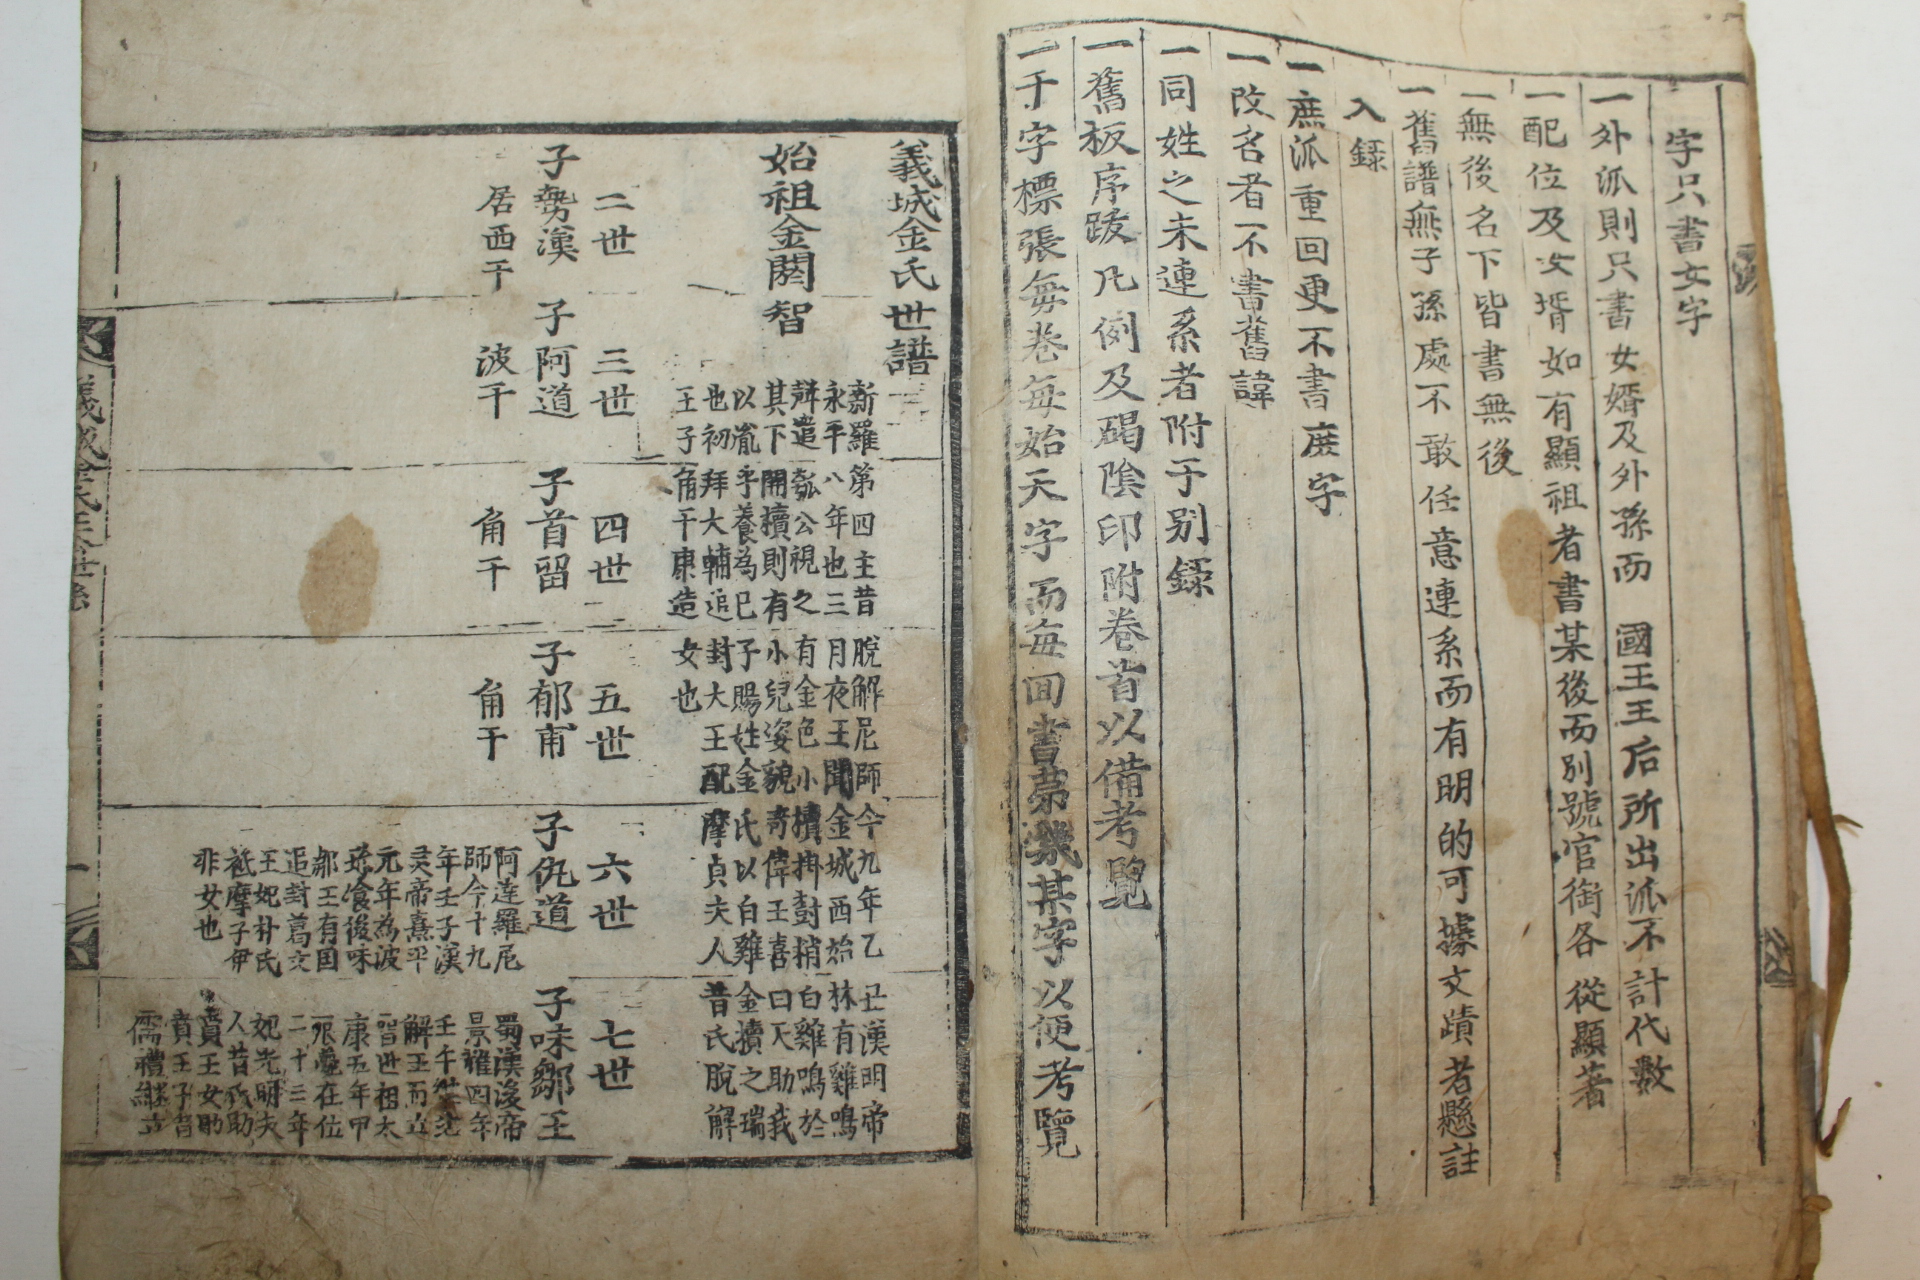 字只書女字
一外派則只書女婿及外孫而 國王王后所出派不計代數
一配位及女壻如有顯祖者書某後而別號官銜各從顯著
一無後名下皆書無後
一舊譜無子孫處不敢任意連系而有明的可據文蹟者懸註
入錄
一庶派重回更不書庶字
一改名者不書舊諱
一同姓之未連系者附于別錄
一舊板序跋凡例及碣陰印附卷首以備考覽
一千字標張每卷每始天字而每回書第幾某字以便考覽
義城金氏世譜
始祖金閼智
新羅第四主昔脫解尼師今九年乙丑漢明帝
永平八年也三月夜王聞金城西始林有雞鳴
聲遣瓠公視之有金色小櫝掛封稍白雞鳴於
其下開櫝則有小兒姿貌奇偉王喜曰天助我
以胤乎養為己子賜姓金氏以白雞金櫝之瑞
也初拜大輔追封大王配摩貞夫人昔氏脫解
王子角干康造女也
二世
子勢漢
居西干
三世
子阿道
波干
四世
子首留
角干
五世
子郁甫
角干
六世
子仇道
阿達羅尼
師今十九
年壬子漢
灵帝熹平
元年為波
珎飡後味
鄒王有国
追封葛文
王妃朴氏
祗摩子伊
非女也
七世
子味鄒王
蜀漢後帝
景耀四年
壬午
解王而立
晋世祖太
康五年甲
辰薨在位
二十三年
妃光明夫
人昔氏助
賁王女助
賁王子昔
儒禮継立